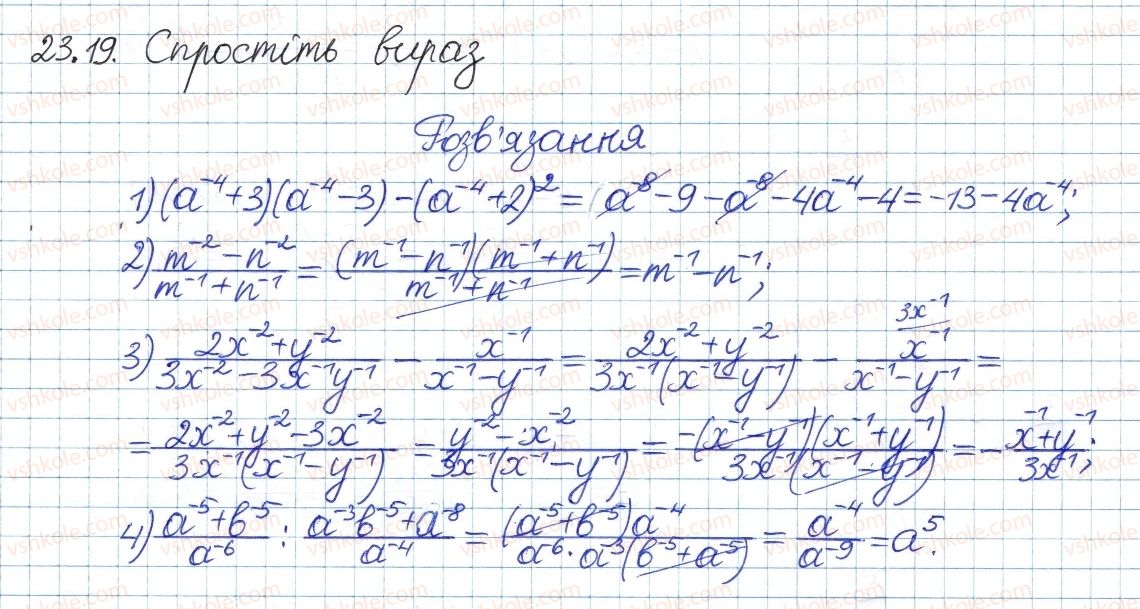 23.19. Спростіть вираз
Розв'язання
1) (a⁻⁴+3)(a⁻⁴-3)-(a⁻⁴+2)² = a⁻⁸-9-a⁻⁸-4a⁻⁴-4=-13-4a⁻⁴;
2) (m⁻²-n⁻²)/(m⁻¹+n⁻¹) = ((m⁻¹-n⁻¹)(m⁻¹+n⁻¹))/(m⁻¹+n⁻¹) = m⁻¹-n⁻¹;
3) (2x⁻²+y⁻²)/(3x⁻²-3x⁻¹y⁻¹) - x⁻¹/(x⁻¹-y⁻¹) = (2x⁻²+y⁻²)/(3x⁻¹(x⁻¹-y⁻¹)) - ³ˣ⁻¹/ x⁻¹/(x⁻¹-y⁻¹) =
= (2x⁻²+y⁻²-3x⁻²)/(3x⁻¹(x⁻¹-y⁻¹)) = (y⁻²-x⁻²)/(3x⁻¹(x⁻¹-y⁻¹)) = (-(x⁻¹-y⁻¹)(x⁻¹+y⁻¹))/(3x⁻¹(x⁻¹-y⁻¹)) = -(x⁻¹+y⁻¹)/(3x⁻¹);
4) (a⁻⁵+b⁻⁵)/a⁻⁶ : (a⁻³b⁻⁵+a⁻⁸)/a⁻⁴ = ((a⁻⁵+b⁻⁵)a⁻⁴)/(a⁻⁶·a⁻³(b⁻⁵+a⁻⁵)) = a⁻⁴/a⁻⁹ = a⁵.